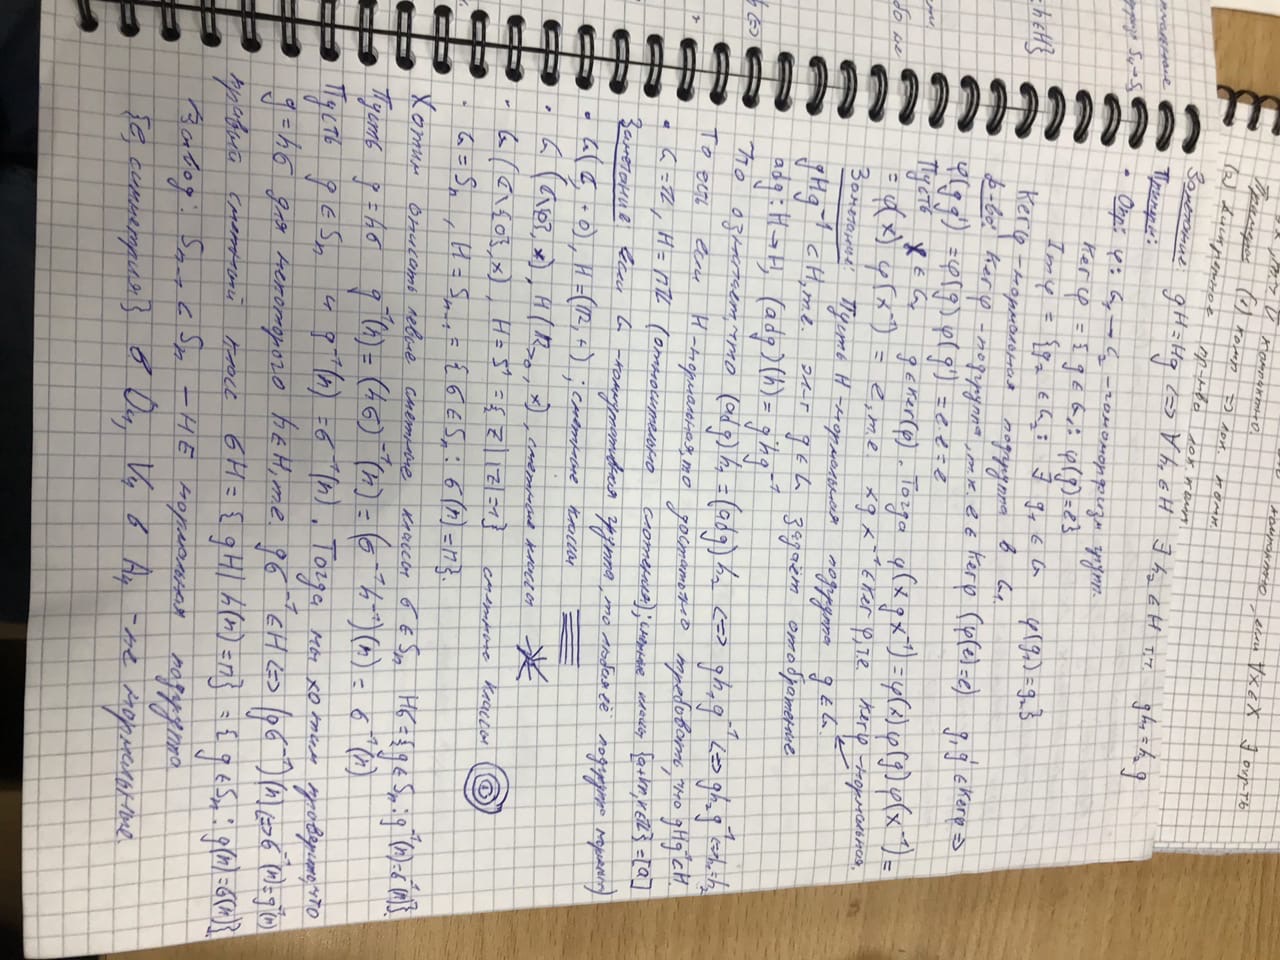 компактно, если ∀x∈X ∃ окр-ть
V̅ компактно.
Примеры (1) комп ⇒ лок. комп.
(2) Дискретное пр-тво лок. комп.
Замечание: gH=Hg ⇔ ∀h₁∈H ∃h₂∈H т.ч. gh₁=h₂g
Примеры:
• Опр: φ: G₁→G₂ - гомоморфизм групп.
Ker φ = {g∈G₁: φ(g)=e}
Im φ = {g₂∈G₂: ∃ g₁∈G φ(g₁)=g₂}
Kerφ - нормальная подгруппа в G₁.
Д-во: Kerφ - подгруппа, т.к. e∈Kerφ (φ(e)=e) g,g'∈Kerφ ⇒
φ(gg') = φ(g)φ(g') = e·e=e
Пусть x∈G₁ g∈Ker(φ). Тогда φ(xgx⁻¹)=φ(x)φ(g)φ(x⁻¹)=
= φ(x) φ(x⁻¹) = e, т.е. xgx⁻¹∈Kerφ, т.е. Kerφ - нормальная.
Замечание: Пусть H - нормальная подгруппа g∈G.
gHg⁻¹⊂H, т.е. эл-т g∈G задаёт отображение
adg: H→H, (adg)(h)=ghg⁻¹
означает, что (adg)h₁=(adg)h₂ ⇔ gh₁g⁻¹ ⇔ gh₂g⁻¹ ⇔ h₁=h₂
То есть если H - нормальная, то достаточно требовать, что gHg⁻¹⊂H.
• G=ℤ, H=nℤ (относительно сложения); смежные классы {a+kn, k∈ℤ}=[a]
Замечание: если G - коммутативная группа, то любая её подгруппа нормальн)
• G(ℂ, +0), H=(ℝ,+); сметные классы
• G (ℂ\{0}, ×), H(ℝ>0, ×), сметные классы
• G (ℂ\{0},×), H=S¹={z| |z|=1} сметные классы
• G=Sₙ, H=Sₙ₋₁={σ∈Sₙ: σ(n)=n}.
Хотим описать левые сметные классы σ∈Sₙ Hσ={g∈Sₙ: g⁻¹(n)=σ⁻¹(n)}.
Пусть g=hσ g⁻¹(n)=(hσ)⁻¹(n)=(σ⁻¹h⁻¹)(n)=σ⁻¹(n)
Пусть g∈Sₙ и g⁻¹(n)=σ⁻¹(n). Тогда мы хотим проверить, что
g=hσ для некоторого h∈H, т.е. gσ⁻¹∈H ⇔ (gσ⁻¹)(n) ⇔ σ⁻¹(n)=g⁻¹(n)
правый сметный класс σH={gH| h(n)=n} = {g∈Sₙ: g(n)=σ(n)}.
Вывод: Sₙ₋₁⊂Sₙ - НЕ нормальная подгруппа
{e, симметрия} в D₄, V₄ в A₄ - не нормальные.